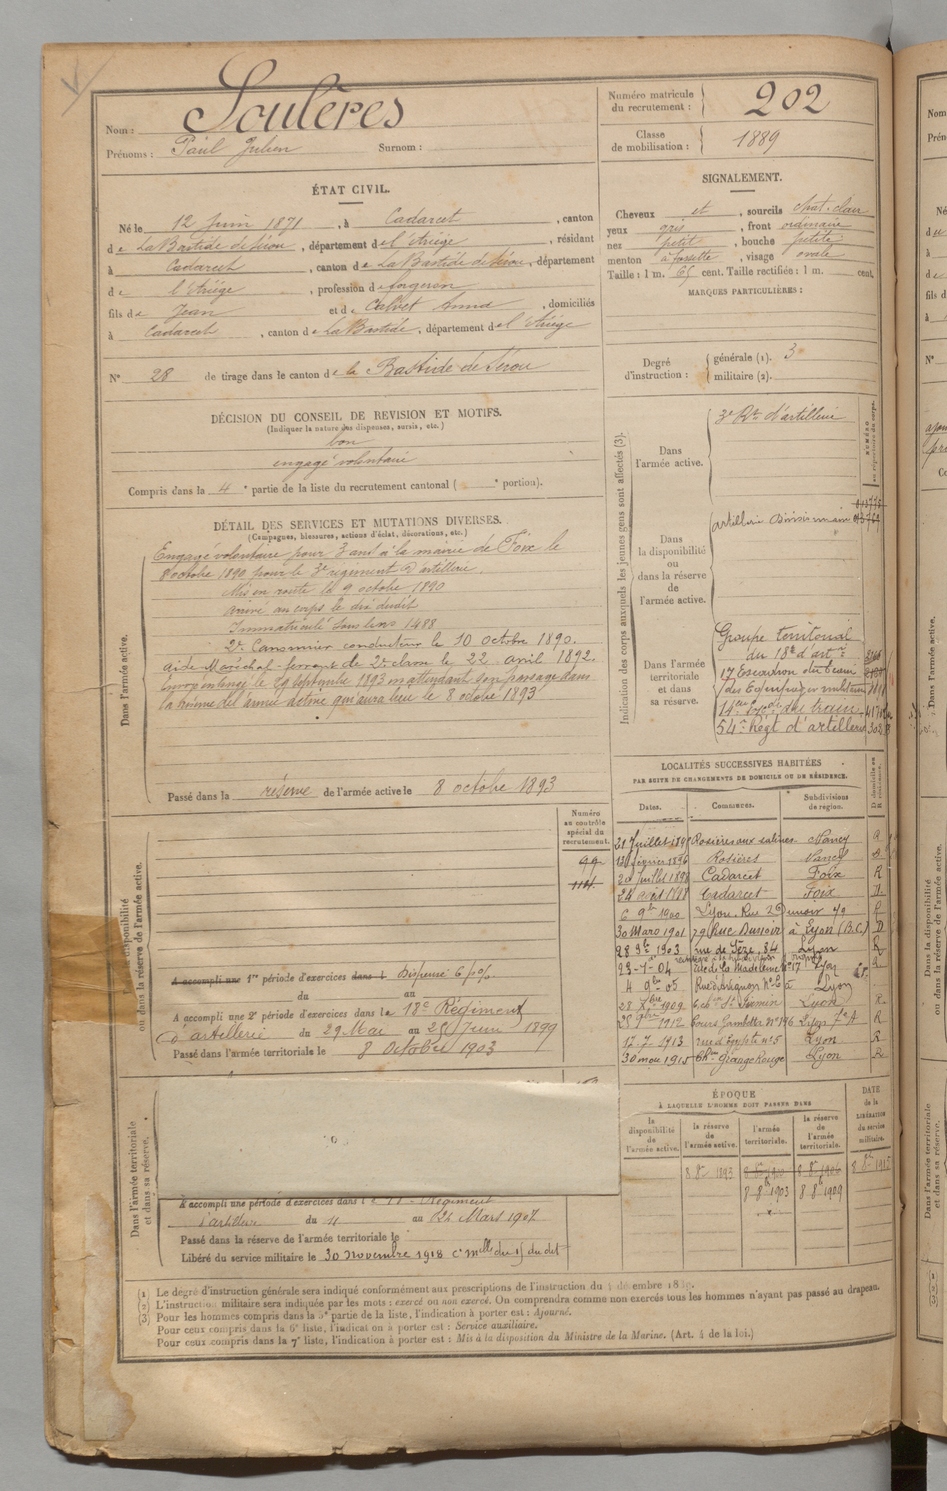 Nom : Soulères
Prénoms : Paul Julien Surnom :
Numéro matricule du recrutement : 202
Classe de mobilisation : 1889
ÉTAT CIVIL.
Né le 12 Juin 1871, à Cadarcet, canton
de La Bastide de Sérou, département de l'Ariège, résidant
à Cadarcet, canton de La Bastide de Sérou, département
de l'Ariège, profession de forgeron
fils de Jean et de Calvet Anna, domiciliés
à Cadarcet, canton de La Bastide, département de l'Ariège
N° 28 de tirage dans le canton de la Bastide de Sérou
SIGNALEMENT.
Cheveux et, sourcils chat. clair
yeux gris, front ordinaire
nez petit, bouche petite
menton à fossette, visage ovale
Taille : 1 m. 65 cent. Taille rectifiée : 1 m. cent.
MARQUES PARTICULIÈRES :
Degré d'instruction : générale (1). 3
militaire (2).
DÉCISION DU CONSEIL DE REVISION ET MOTIFS.
(Indiquer la nature des dispenses, sursis, etc.)
bon
engagé volontaire
Compris dans la 4e partie de la liste du recrutement cantonal ( e portion).
DÉTAIL DES SERVICES ET MUTATIONS DIVERSES.
(Campagnes, blessures, actions d'éclat, décorations, etc.)
Dans l'armée active.
Engagé volontaire pour 3 ans à la mairie de Foix le
8 octobre 1890 pour le 3e régiment d'artillerie.
Mis en route le 9 octobre 1890
arrivé au corps le dix dudit
Immatriculé sous le no 1488
2e Canonnier conducteur le 10 octobre 1890.
aide-Maréchal-ferrant de 2e classe le 22 avril 1892.
Envoyé en congé le 29 Septembre 1893 en attendant son passage dans
la réserve de l'armée active qui aura lieu le 8 octobre 1893
Passé dans la réserve de l'armée active le 8 octobre 1893
Indication des corps auxquels les jeunes gens sont affectés (3).
Dans l'armée active.
3e Rt d'artillerie
Dans la disponibilité ou dans la réserve de l'armée active.
artillerie Divisionnaire
Dans l'armée territoriale et dans sa réserve.
Groupe territorial
du 18e d'artie
17 Escadron du train
des Equipages militaires
14eme Escon du train
54e Régt d'artillerie
LOCALITÉS SUCCESSIVES HABITÉES
PAR SUITE DE CHANGEMENTS DE DOMICILE OU DE RÉSIDENCE.
Dates. Communes. Subdivisions de région. D domicile ou R résidence.
21 Juillet 1895 Rosières aux salines Nancy R
12 février 1896 Rosières Nancy D
20 Juillet 1898 Cadarcet Foix R
24 août 1898 Cadarcet Foix D
6 9bre 1900 Lyon. Rue Dunoir 79 R
30 Mars 1901 79 Rue Dunoir à Lyon (B.C.) D
28 9bre 1903 rue de Sèze, 84 Lyon R
22-7-04 de la Madeleine n° 17 Lyon R
4 9bre 05 Rue d'Avignon n° 2 à Lyon
28 Xbre 1909 6 ch. St Sidoine Lyon R
28 9bre 1912 Cours Gambetta n° 146 Lyon 7e A R
17 7 1913 rue d'Egypte n° 5 Lyon R
30 mai 1915 Ch. Grange Rouge Lyon R
Dans la disponibilité ou dans la réserve de l'armée active.
Numéro au contrôle spécial du recrutement.
A accompli une 1re période d'exercices dans l Dispensé 6 p%
du au
A accompli une 2e période d'exercices dans le 18e Régiment
d'artillerie du 29 Mai au 25 Juin 1899
Passé dans l'armée territoriale le 8 Octobre 1903
Dans l'armée territoriale et dans sa réserve.
A accompli une période d'exercices dans le Régiment
d'artillerie du 11 au 24 Mars 1907
Passé dans la réserve de l'armée territoriale le
Libéré du service militaire le 30 novembre 1918 ce mlle du 15 du dit
ÉPOQUE
À LAQUELLE L'HOMME DOIT PASSER DANS
la disponibilité de l'armée active. la réserve de l'armée active. l'armée territoriale. la réserve de l'armée territoriale. DATE de la LIBÉRATION du service militaire.
8 8bre 1893
8 8bre 1903 8 8bre 1909
(1) Le degré d'instruction générale sera indiqué conformément aux prescriptions de l'instruction du 4 décembre 1889.
(2) L'instruction militaire sera indiquée par les mots : exercé ou non exercé. On comprendra comme non exercés tous les hommes n'ayant pas passé au drapeau.
(3) Pour les hommes compris dans la 5e partie de la liste, l'indication à porter est : Ajourné.
Pour ceux compris dans la 6e liste, l'indication à porter est : Service auxiliaire.
Pour ceux compris dans la 7e liste, l'indication à porter est : Mis à la disposition du Ministre de la Marine. (Art. 4 de la loi.)